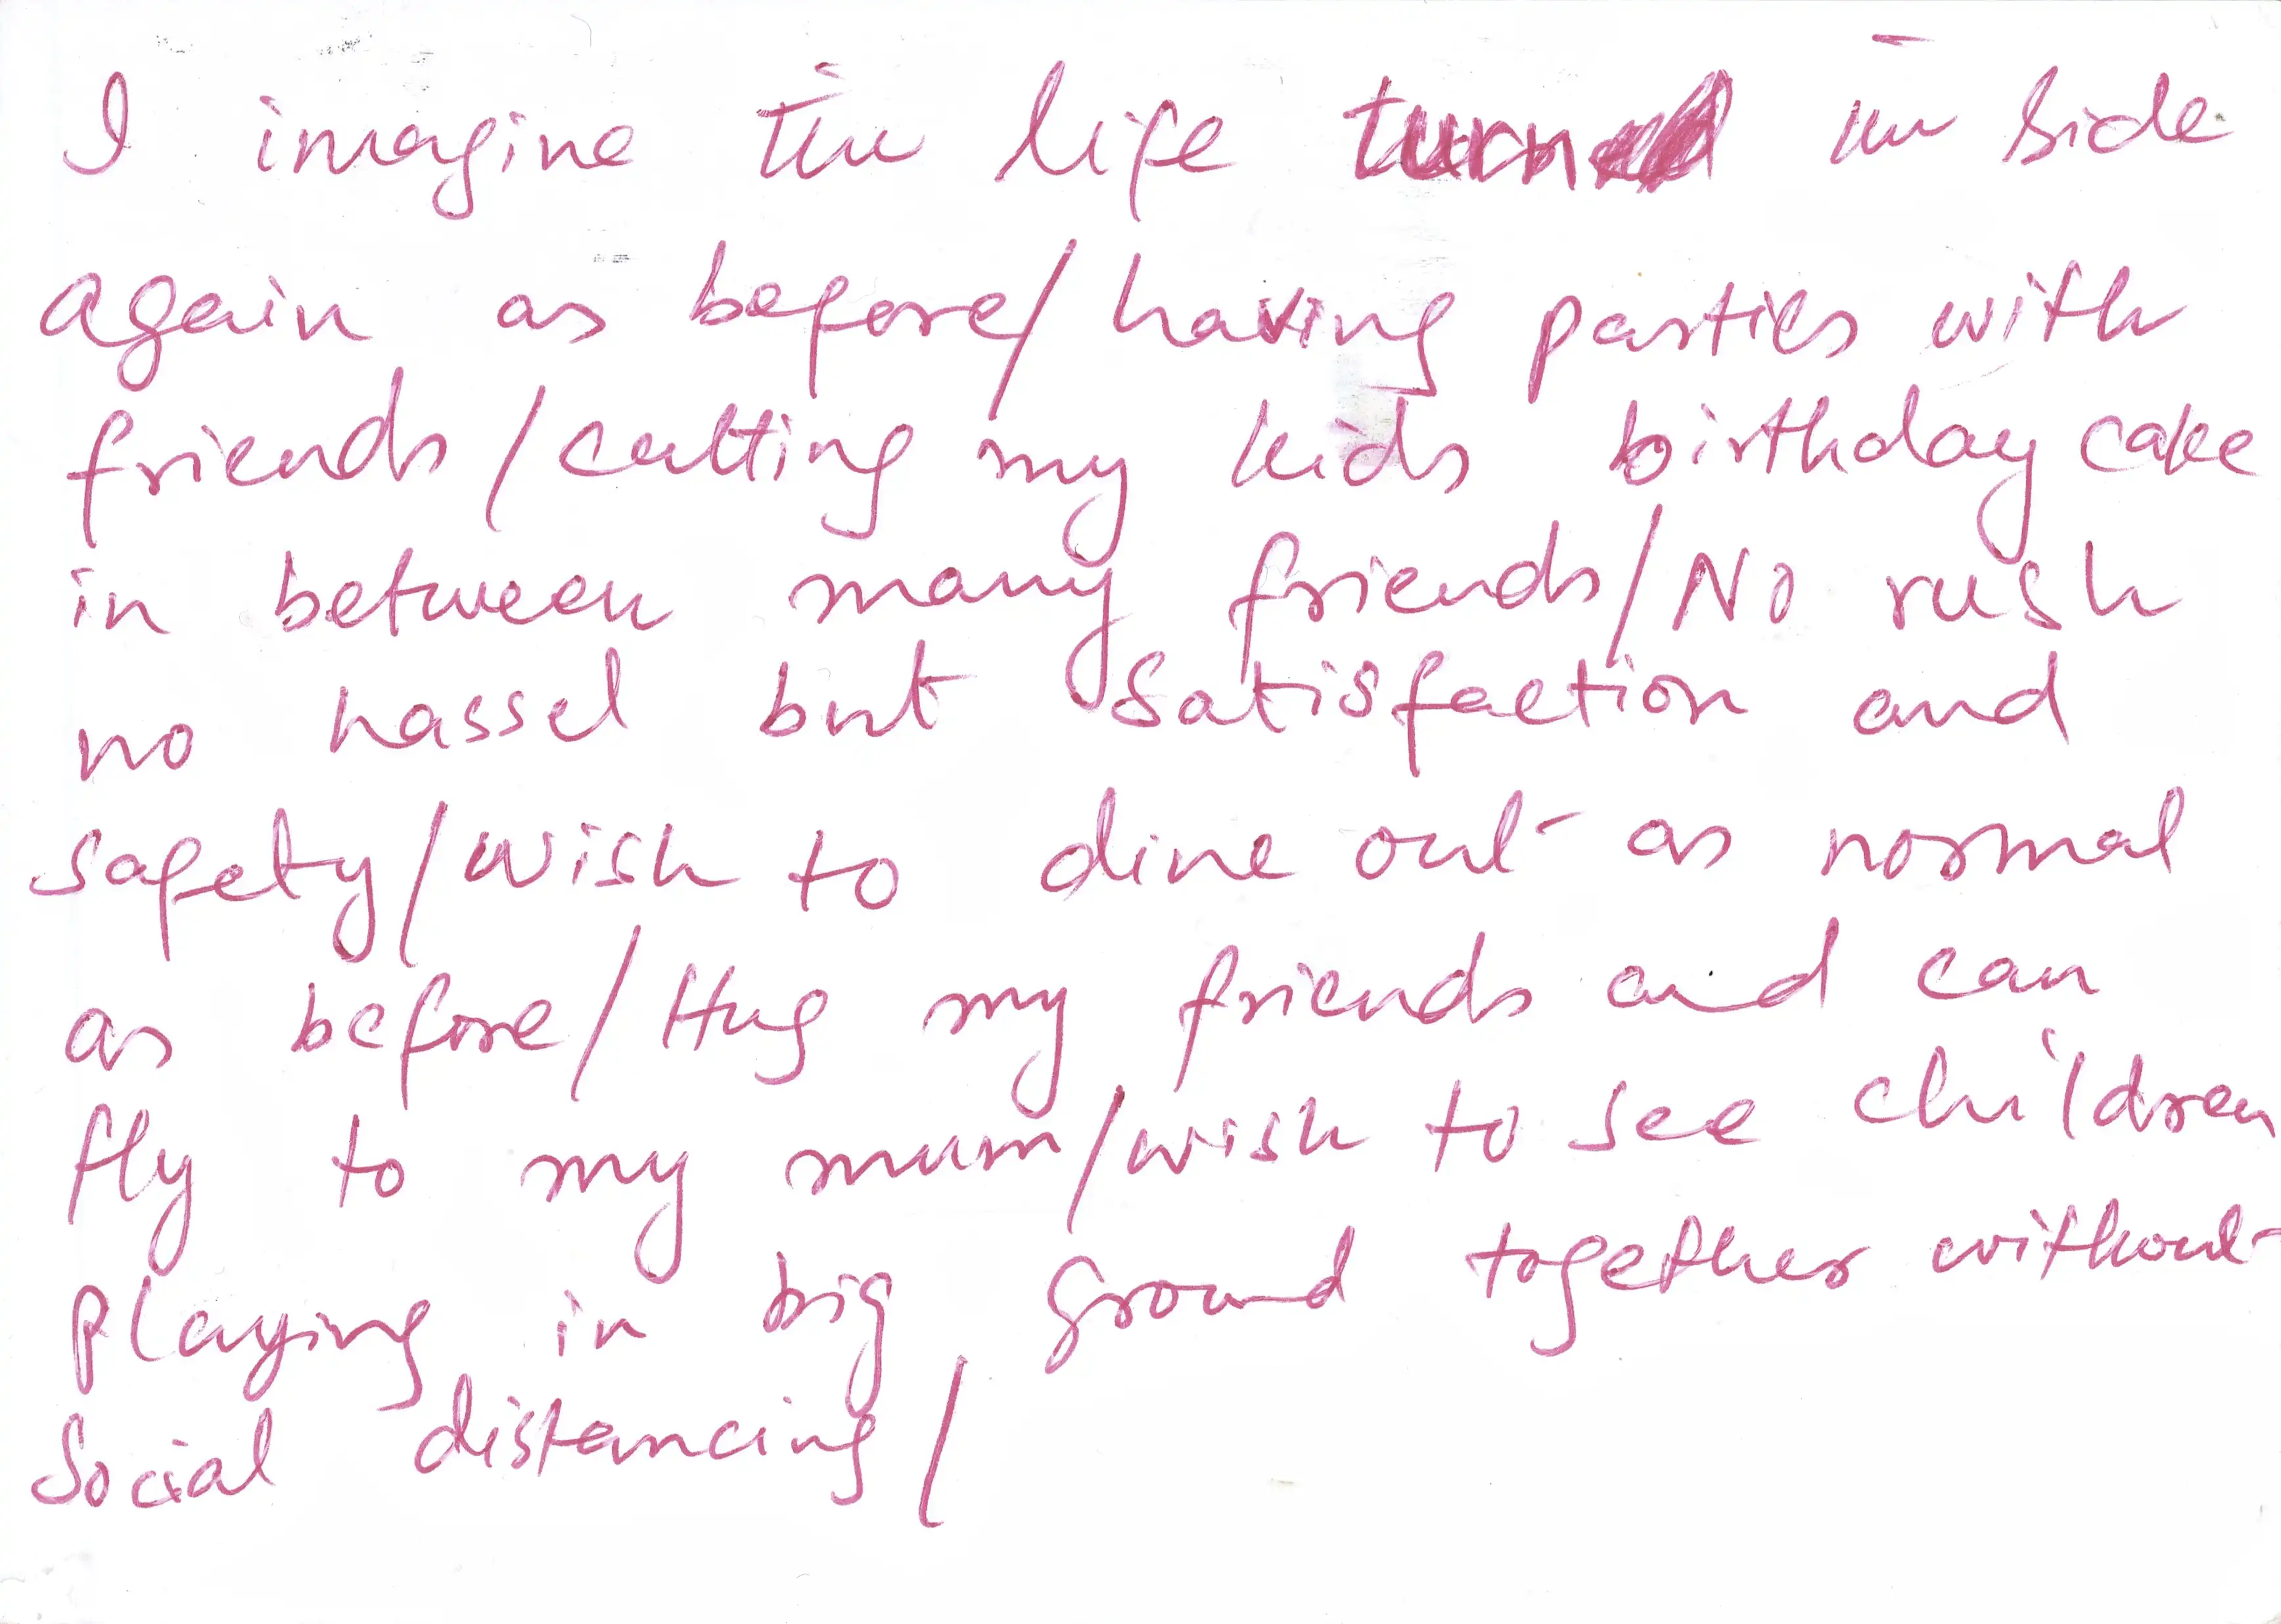 I imagine the life turn in side
again as before/having parties with
friends/cutting my kids birthday cake
in between many friends/No rush
no hassel but satisfaction and
safety/wish to dine out as normal
as before/Hug my friends and can
fly to my mum/wish to see children
playing in big ground together without
social distancing/